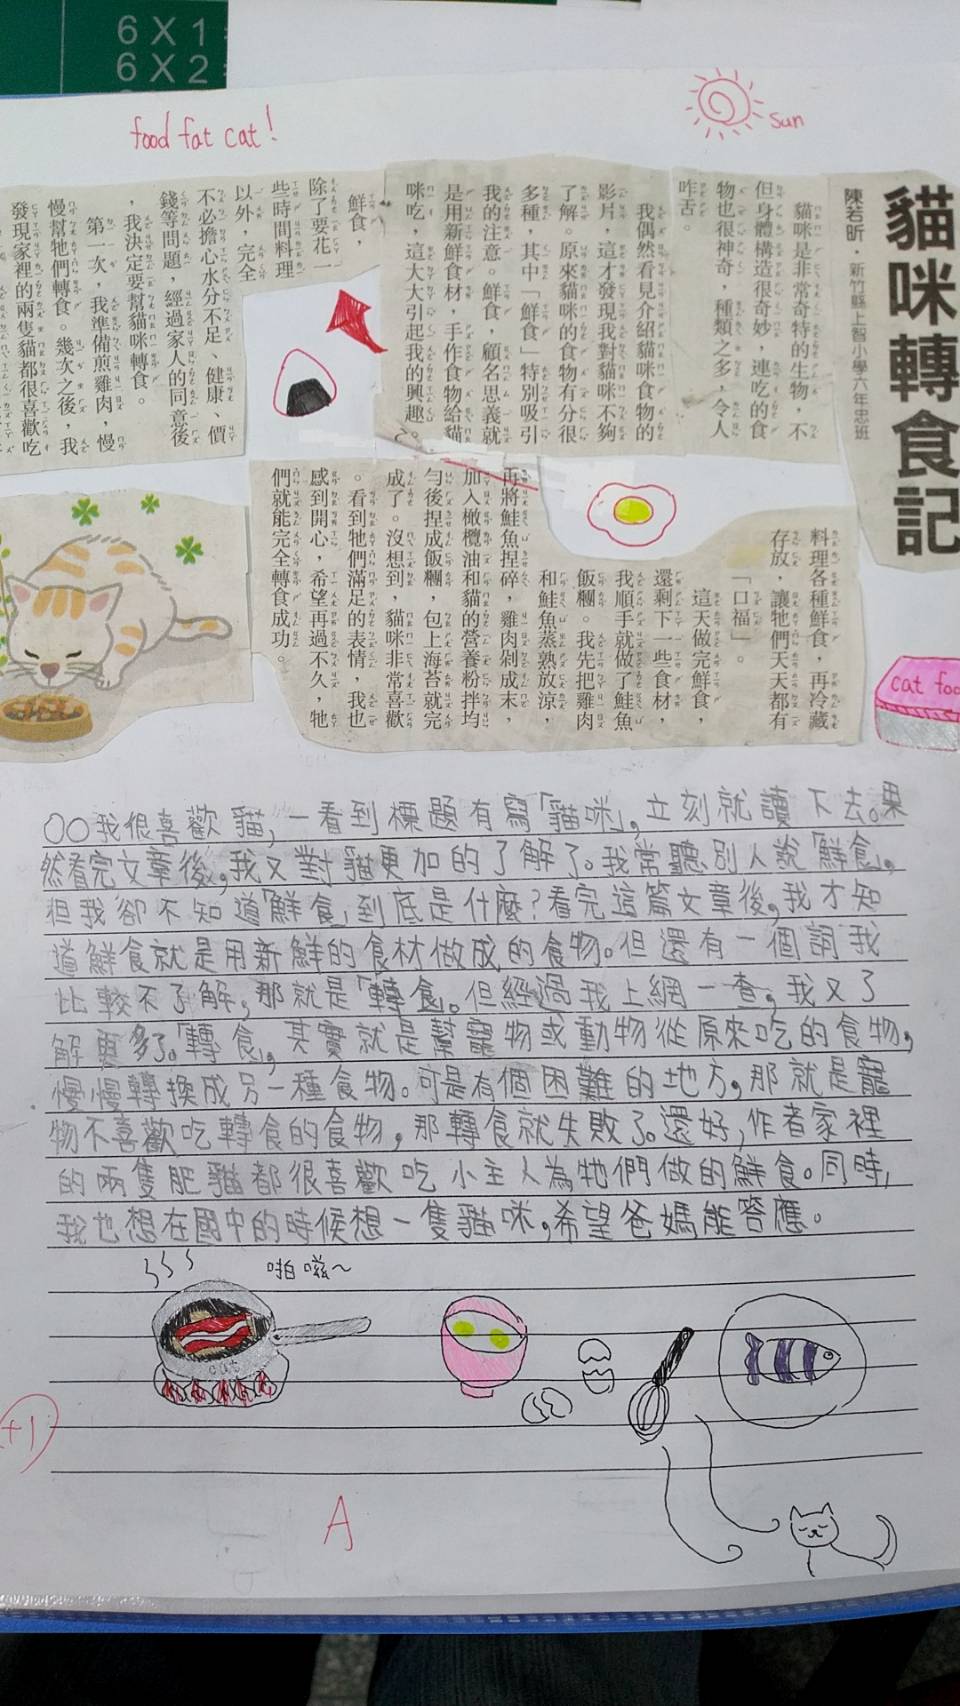 6 X 1
6 X 2
food fat cat!
sun
貓咪轉食記
陳若昕．新竹縣上智小學六年忠班
貓咪是非常奇特的生物，不
但身體構造很奇妙，連吃的食
物也很神奇，種類之多，令人
咋舌。
我偶然看見介紹貓咪食物的
影片，這才發現我對貓咪不夠
了解。原來貓咪的食物有分很
多種，其中「鮮食」特別吸引
我的注意。鮮食，顧名思義就
是用新鮮食材，手作食物給貓
咪吃，這大大引起我的興趣。
鮮食，
除了要花一
些時間料理
以外，完全
不必擔心水分不足、健康、價
錢等問題，經過家人的同意後
，我決定要幫貓咪轉食。
第一次，我準備煎雞肉，慢
慢幫牠們轉食。幾次之後，我
發現家裡的兩隻貓都很喜歡吃
料理各種鮮食，再冷藏
存放，讓牠們天天都有
「口福」。
這天做完鮮食，
還剩下一些食材，
我順手就做了鮭魚
飯糰。我先把雞肉
和鮭魚蒸熟放涼，
再將鮭魚捏碎，雞肉剁成末，
加入橄欖油和貓的營養粉拌均
勻後捏成飯糰，包上海苔就完
成了。沒想到，貓咪非常喜歡
。看到牠們滿足的表情，我也
感到開心，希望再過不久，牠
們就能完全轉食成功。
cat foo
○○我很喜歡貓，一看到標題有寫「貓咪」，立刻就讀下去。果
然看完文章後，我又對貓更加的了解了。我常聽別人說「鮮食」，
但我卻不知道「鮮食」到底是什麼？看完這篇文章後，我才知
道鮮食就是用新鮮的食材做成的食物。但還有一個詞我
比較不了解，那就是「轉食」。但經過我上網一查，我又了
解更多了。「轉食」，其實就是幫寵物或動物從原來吃的食物，
慢慢轉換成另一種食物。可是有個困難的地方，那就是寵
物不喜歡吃轉食的食物，那轉食就失敗了。還好，作者家裡
的兩隻肥貓都很喜歡吃小主人為牠們做的鮮食。同時，
我也想在國中的時候想一隻貓咪，希望爸媽能答應。
啪嗞～
+1
A